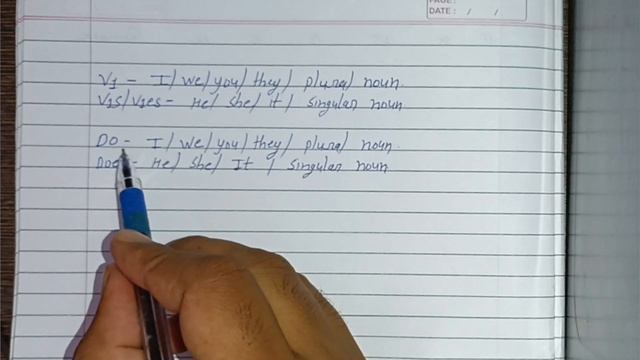 PAGE:
DATE: / /
V1 - I/ we/ you/ they/ plural noun.
V1s/V1es - He/ she/ it/ singular noun
Do - I/ we/ you/ they/ plural noun.
- He/ she/ It / singular noun